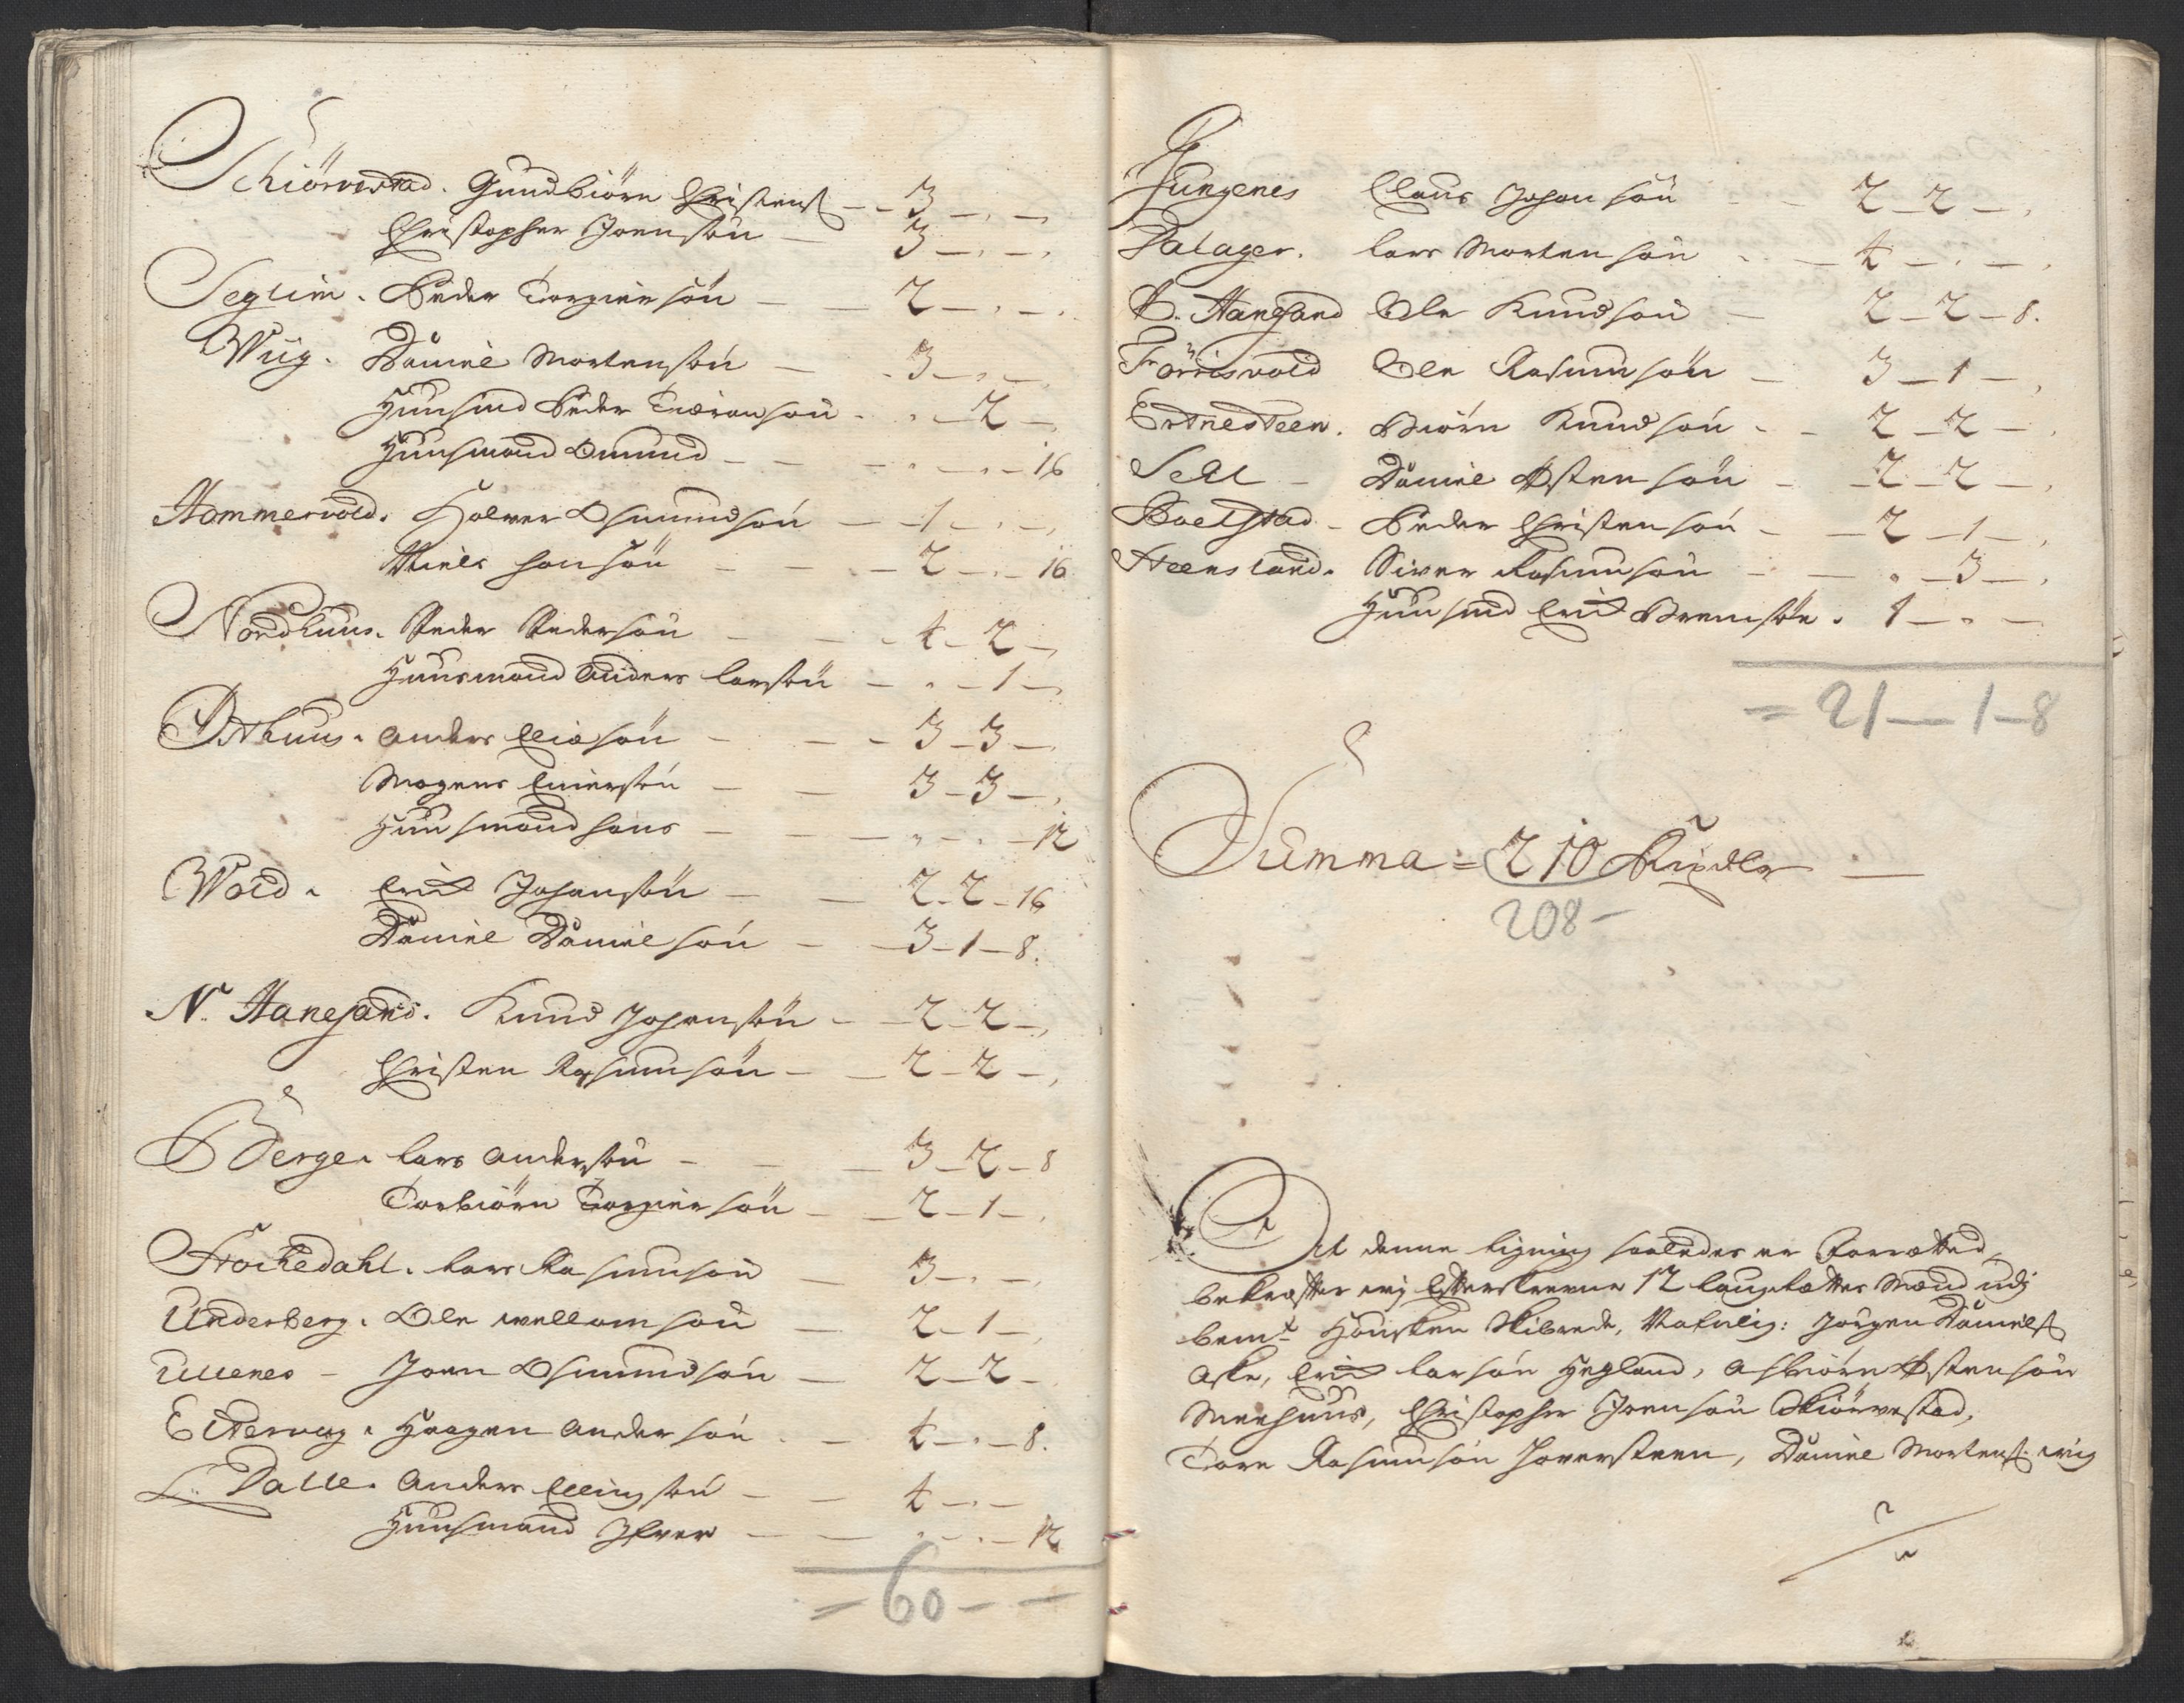 Schiörvestad. Gundbiörn Christens. — 3 — . —
Christopher Joensön — 3 — . — .
Seglim. Peder Torgiersön — 2 — . — .
Wiig. Daniel Mortensön — 3 — . —
Huusmd Peder Tieranson . . — 2 —
Huusmand Omund — — . — . — 16
Hammervold. Halvor Osmundsön — 1 — . — .
Niels Hansön — — 2 — . — 16
Nordhuus. Peder Pedersön — 4 — 2 —
Huusmand Anders Larsön — . — 1 —
Østhuus. Anders Eliasön — 3 — 3 —
Mogens Einersön — 3 — 3 —
Huusmand Hans — . — . — 12
Wold. Erich Johansön — 2 — 2 — 16
Daniel Danielsön — 3 — 1 — 8.
N. Hanesand. Knud Johansön — 2 — 2 —
Christen Rasmusön — 2 — 2 —
Berge. Lars Andersön — 3 — 2 — 8
Torbiörn Torgiersön — 2 — 1 — .
Stockedahl. Lars Rasmusön — 3 — . — .
Underberg. Ole Wellomsön — 2 — 1 —
Ullenes — Joen Osmundsön — 2 — 2 —
Eltervog. Haagen Andersön . — 4 — . — 8.
L. Dalle. Anders Ellingsön — 4 — . —
Huusmand Iver — . — . — 12
= 60 — —
Fungenes Claus Johansön — 2 — 2 — .
Dalager. Lars Mortensön . — 4 — . — .
S. Hanesand Ole Knudsön — 2 — 2 — 8.
Förrisvold Ole Rasmusön — 3 — 1 — ,
Ertnesteen. Biörn Knudsön — 2 — 2 — .
Sell — Daniel Østensön — 2 — 2 — .
Boelstad — Peder Christensön — 2 — 1 — .
Steensland. Siver Rasmusön — . — 3 — .
Huusmd Erich Svensön . 1 — . —
= 21 — 1 — 8
Summa = 210 Rixdlr —
208 —
At denne Ligning saaledes er Forrætted
bekræfter vij Efterskrevne 12 Laugrættes Mænd udj
bemte Hausken Skibrede, Nafnlig: Jörgen Daniels.
Aske, Erich Larsön Hegland, Asbiörn Østensön
Meehuus, Christopher Joensön Skiörvestad,
Tore Rasmusön Haversteen, Daniel Mortens. Wiig